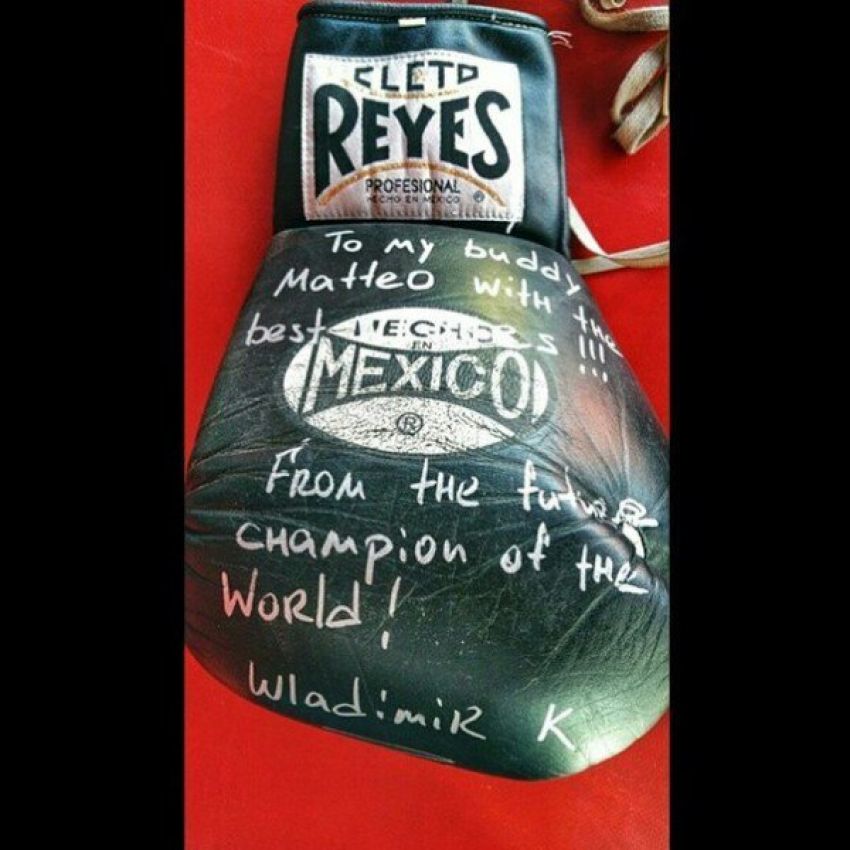 CLETO
REYES
PROFESIONAL
HECHO EN MEXICO ®
To my buddy
Matteo with the
best wishes !!!
HECHO
EN
MEXICO
®
From the future
champion of the
World!
Wladimir K